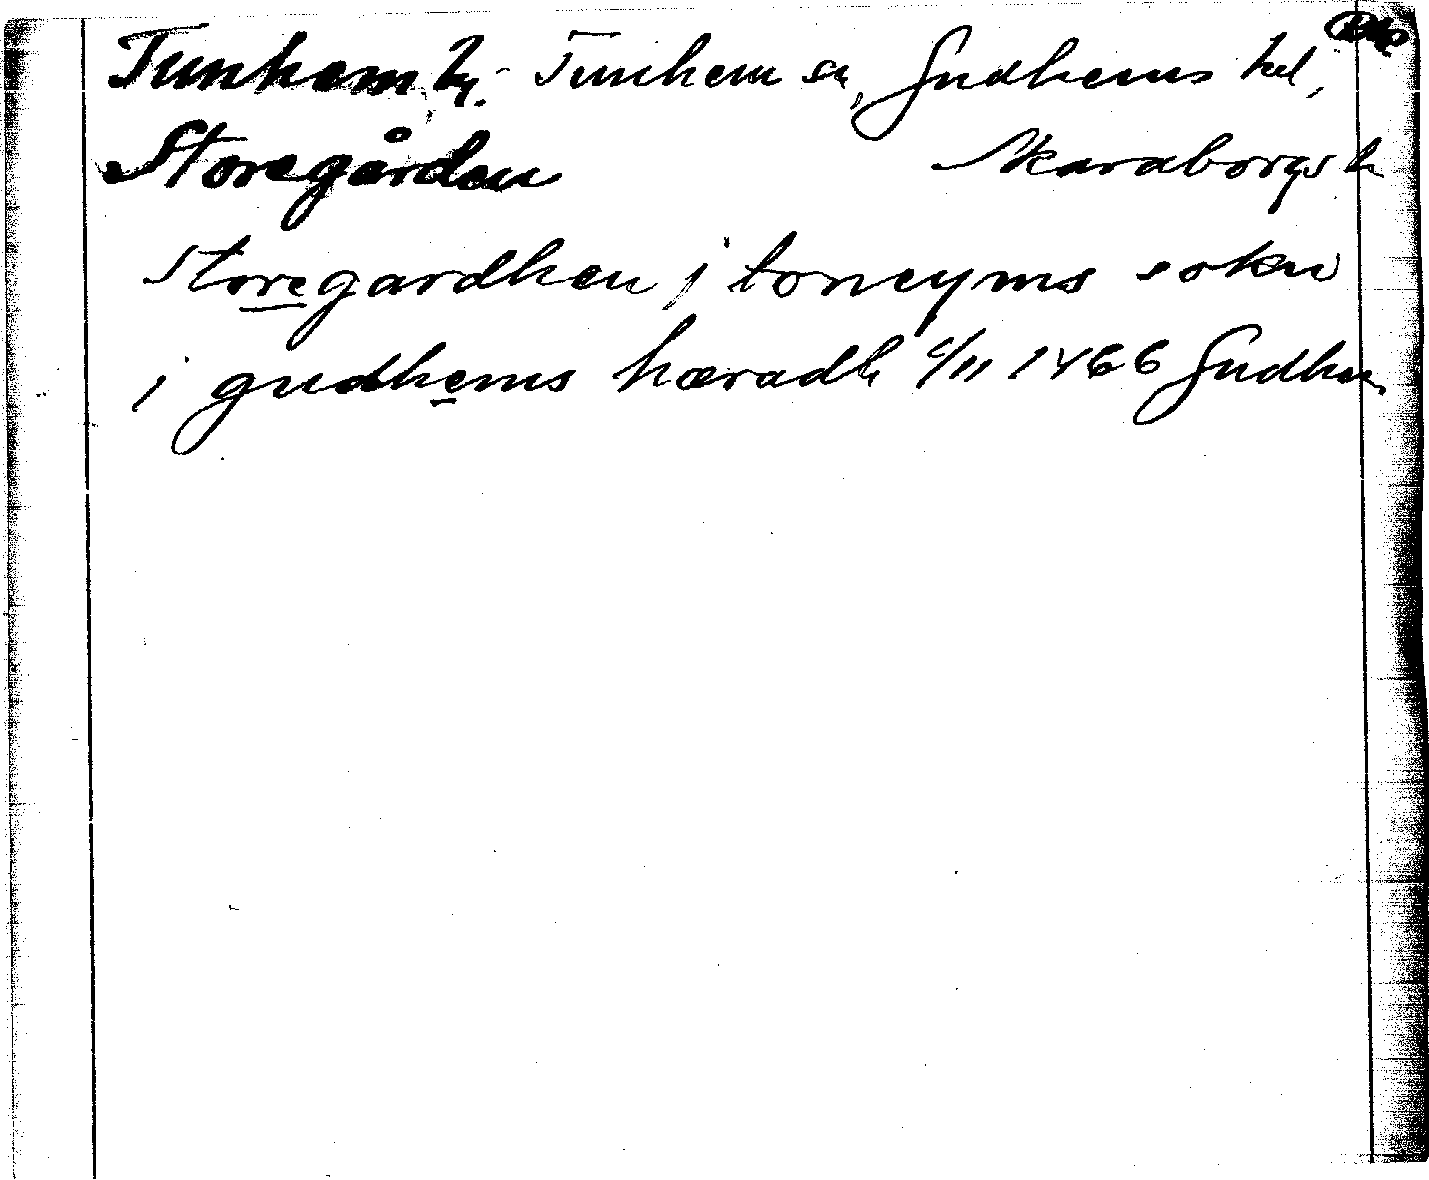 Tunhem Ty. Tunhem sn, Gudhems hd,
Storegården Skaraborgs l.
Storegardhen j toneyms sokn
i gudhems hæradh 6/11 1466 Gudhem